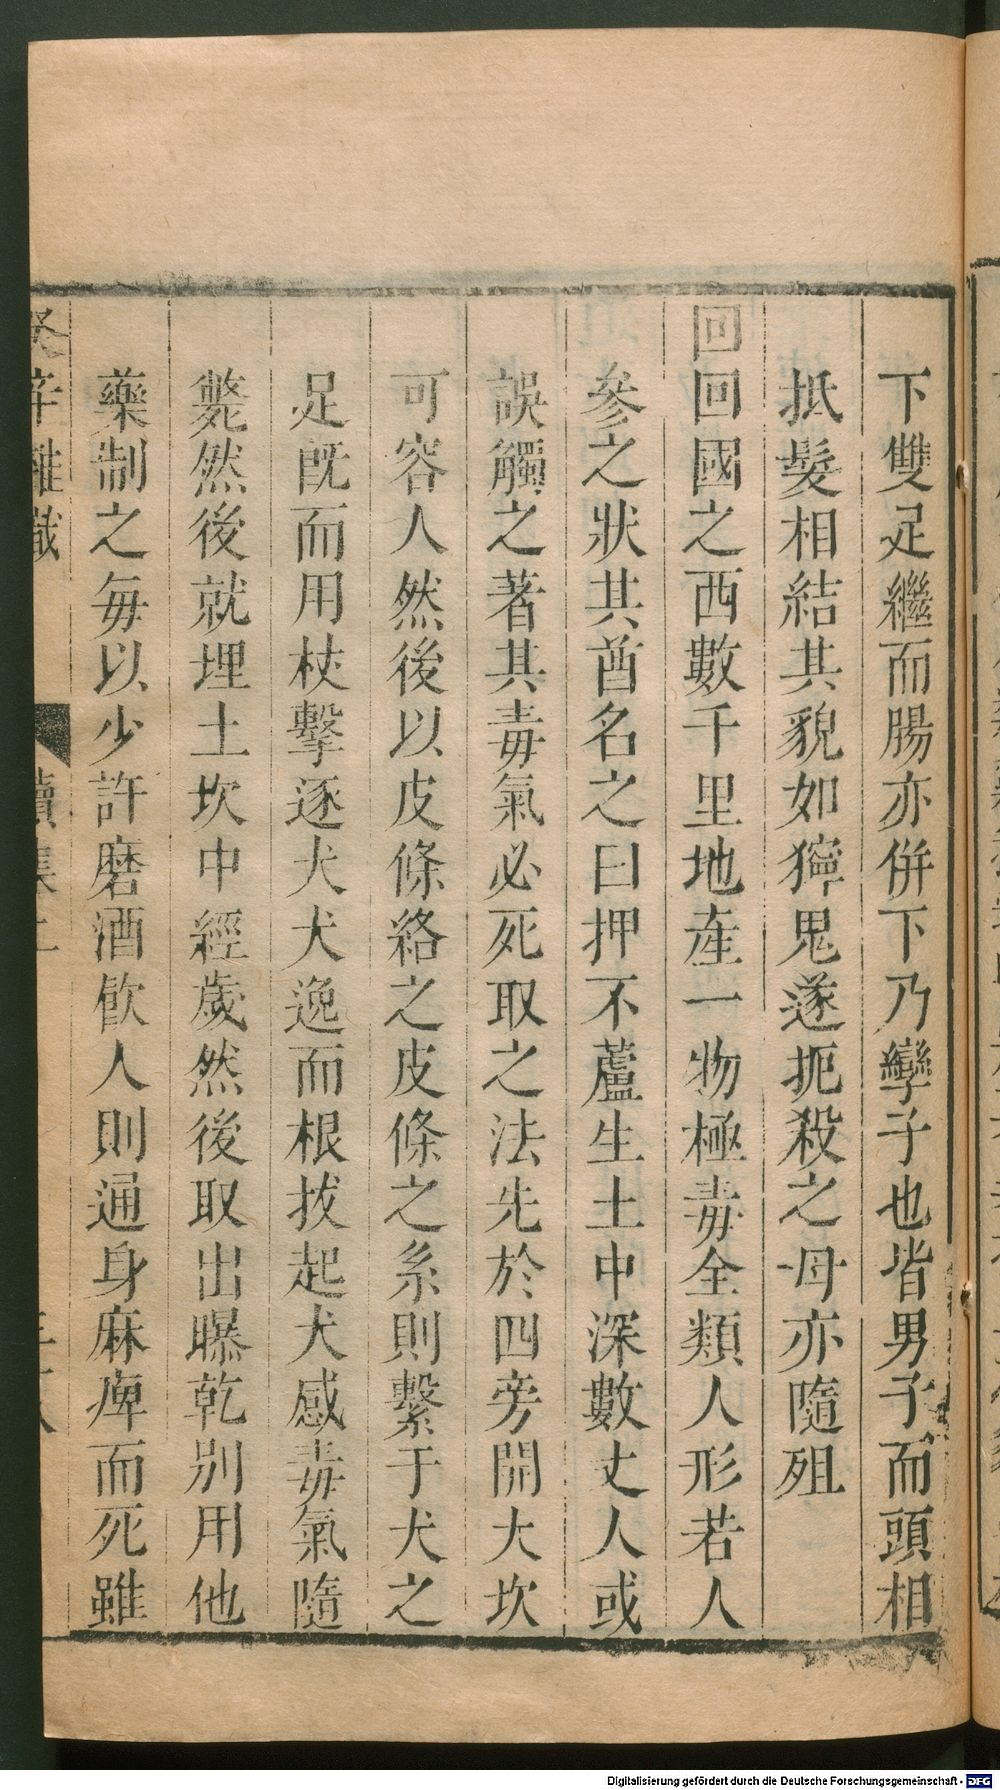 下雙足繼而腸亦併下乃孿子也皆男子而頭相
抵髮相結其貌如獰鬼遂扼殺之母亦隨殂
回回國之西數千里地產一物極毒全類人形若人
參之狀其酋名之曰押不蘆生土中深數丈人或
誤觸之著其毒氣必死取之法先於四旁開大坎
可容人然後以皮條絡之皮條之系則繫于犬之
足既而用杖擊逐犬犬逸而根拔起犬感毒氣隨
斃然後就埋土坎中經歲然後取出曝乾別用他
藥制之每以少許磨酒飲人則通身麻痺而死雖
癸辛雜識 續集上
Digitalisierung gefördert durch die Deutsche Forschungsgemeinschaft - DFG